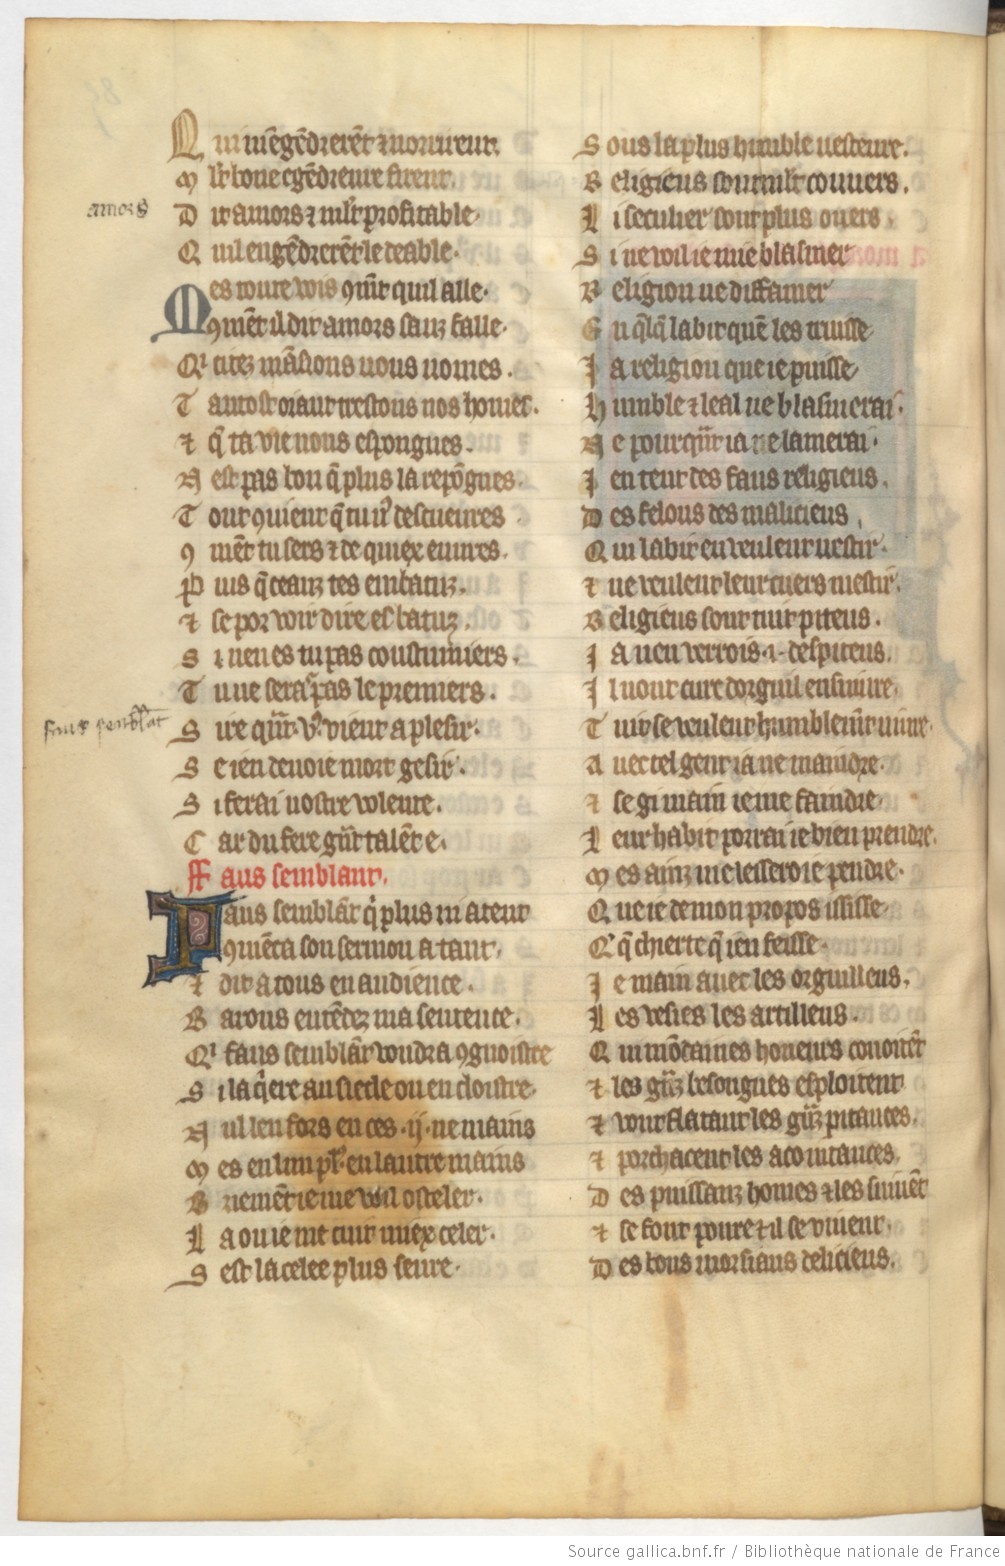 Qui m'ẽgẽdrerẽt ⁊ norrirent.
Ml't bone ẽgẽdreure firent.
amors
Dit amors ⁊ ml't profitable
Quil engẽdrerẽt le deable.
Mes toute vois ꝯmẽt quil alle.
ꝯmẽt il dit amors sanz falle.
Qͥ ci tez mãsions nous nomes.
Tantost oiant trestous nos homes.
⁊ q̃ ta vie nous espongnes.
Nest pas bon q̃ plus la repõgnes.
Tout ꝯuient q̃ tu nͬ descueures
ꝯmẽt tu sers ⁊ de quiex euures.
Puis q̃ ceanz tes enbatuz.
⁊ se por voir dire es batuz.
Si nen es tu pas coustumiers.
Tu ne seras pas le premiers.
faus semblãt
Sire qñt vͦ vient a plesir.
Se ien deuoie mort gesir.
Si ferai uostre volente.
Car du fere gñt talẽt e.
Faus semblant.
Faus semblãt qͥ plus ni atent
ꝯmẽca son sermon a tant.
⁊ dit a tous en audience.
Barons entẽdez ma sentence.
Qͥ faus semblãt voudra ꝯgnoistre
Si la q̃ere au siecle ou en cloistre.
Nul leu fors en ces .ij. ne mains
Mes en lun pl' en lautre mains
Briemẽt ie me voil osteler.
La ou ie me cuit miex celer.
Sest la celee plus seure.
Sous la plus humble uesteure.
Religieus sont mlt couuers.
Li seculier sont plus ouers.
Si ne voil ie mie blasmer
Religion ne diffamer
En q̃lq̃ labit quẽ les truisse
Ja religion que ie puisse
Humble ⁊ leal ne blasmerai.
Ne pourqñt ia ne lamerai.
Jen tent des faus religieus.
Des felons des malicieus.
Qui labit en veulent uestir.
⁊ ne veulent leur cuers mestir.
Religieus sont tuit piteus.
Ja nen verrois .i. despiteus.
Jl nont cure dorguil ensuiure.
Tuit se veulent humblemẽt viure.
Auec tel gent ia ne maindre.
⁊ se gi main ie me faindre.
Leur habit porrai ie bien prendre.
Mes ainz me lesseroie pendre.
Que ie de mon propos ississe.
Qͥ q̃ chierte q̃ ien feisse.
Je main auec les orguilleus.
Les vesies les artilleus.
Qui mõdaines honeurs conoitẽt
⁊ les gñz besongnes esploitent
⁊ vont flatant les gñz pitances.
⁊ porchacent les acointances.
Des puissanz homes ⁊ les siuuẽt
⁊ se font poure ⁊ il se viuent.
Des bons morsiaus delicieus.
Source gallica.bnf.fr / Bibliothèque nationale de France